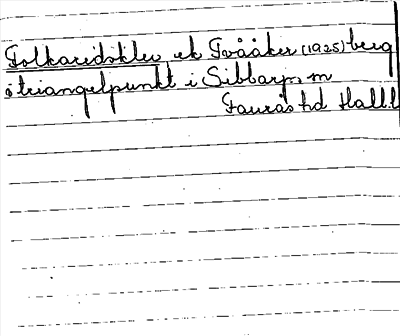 Folkaredsklev, ek Tvååker (1925) berg
o triangelpunkt i Sibbarp, m
Faurås hd Hall.l